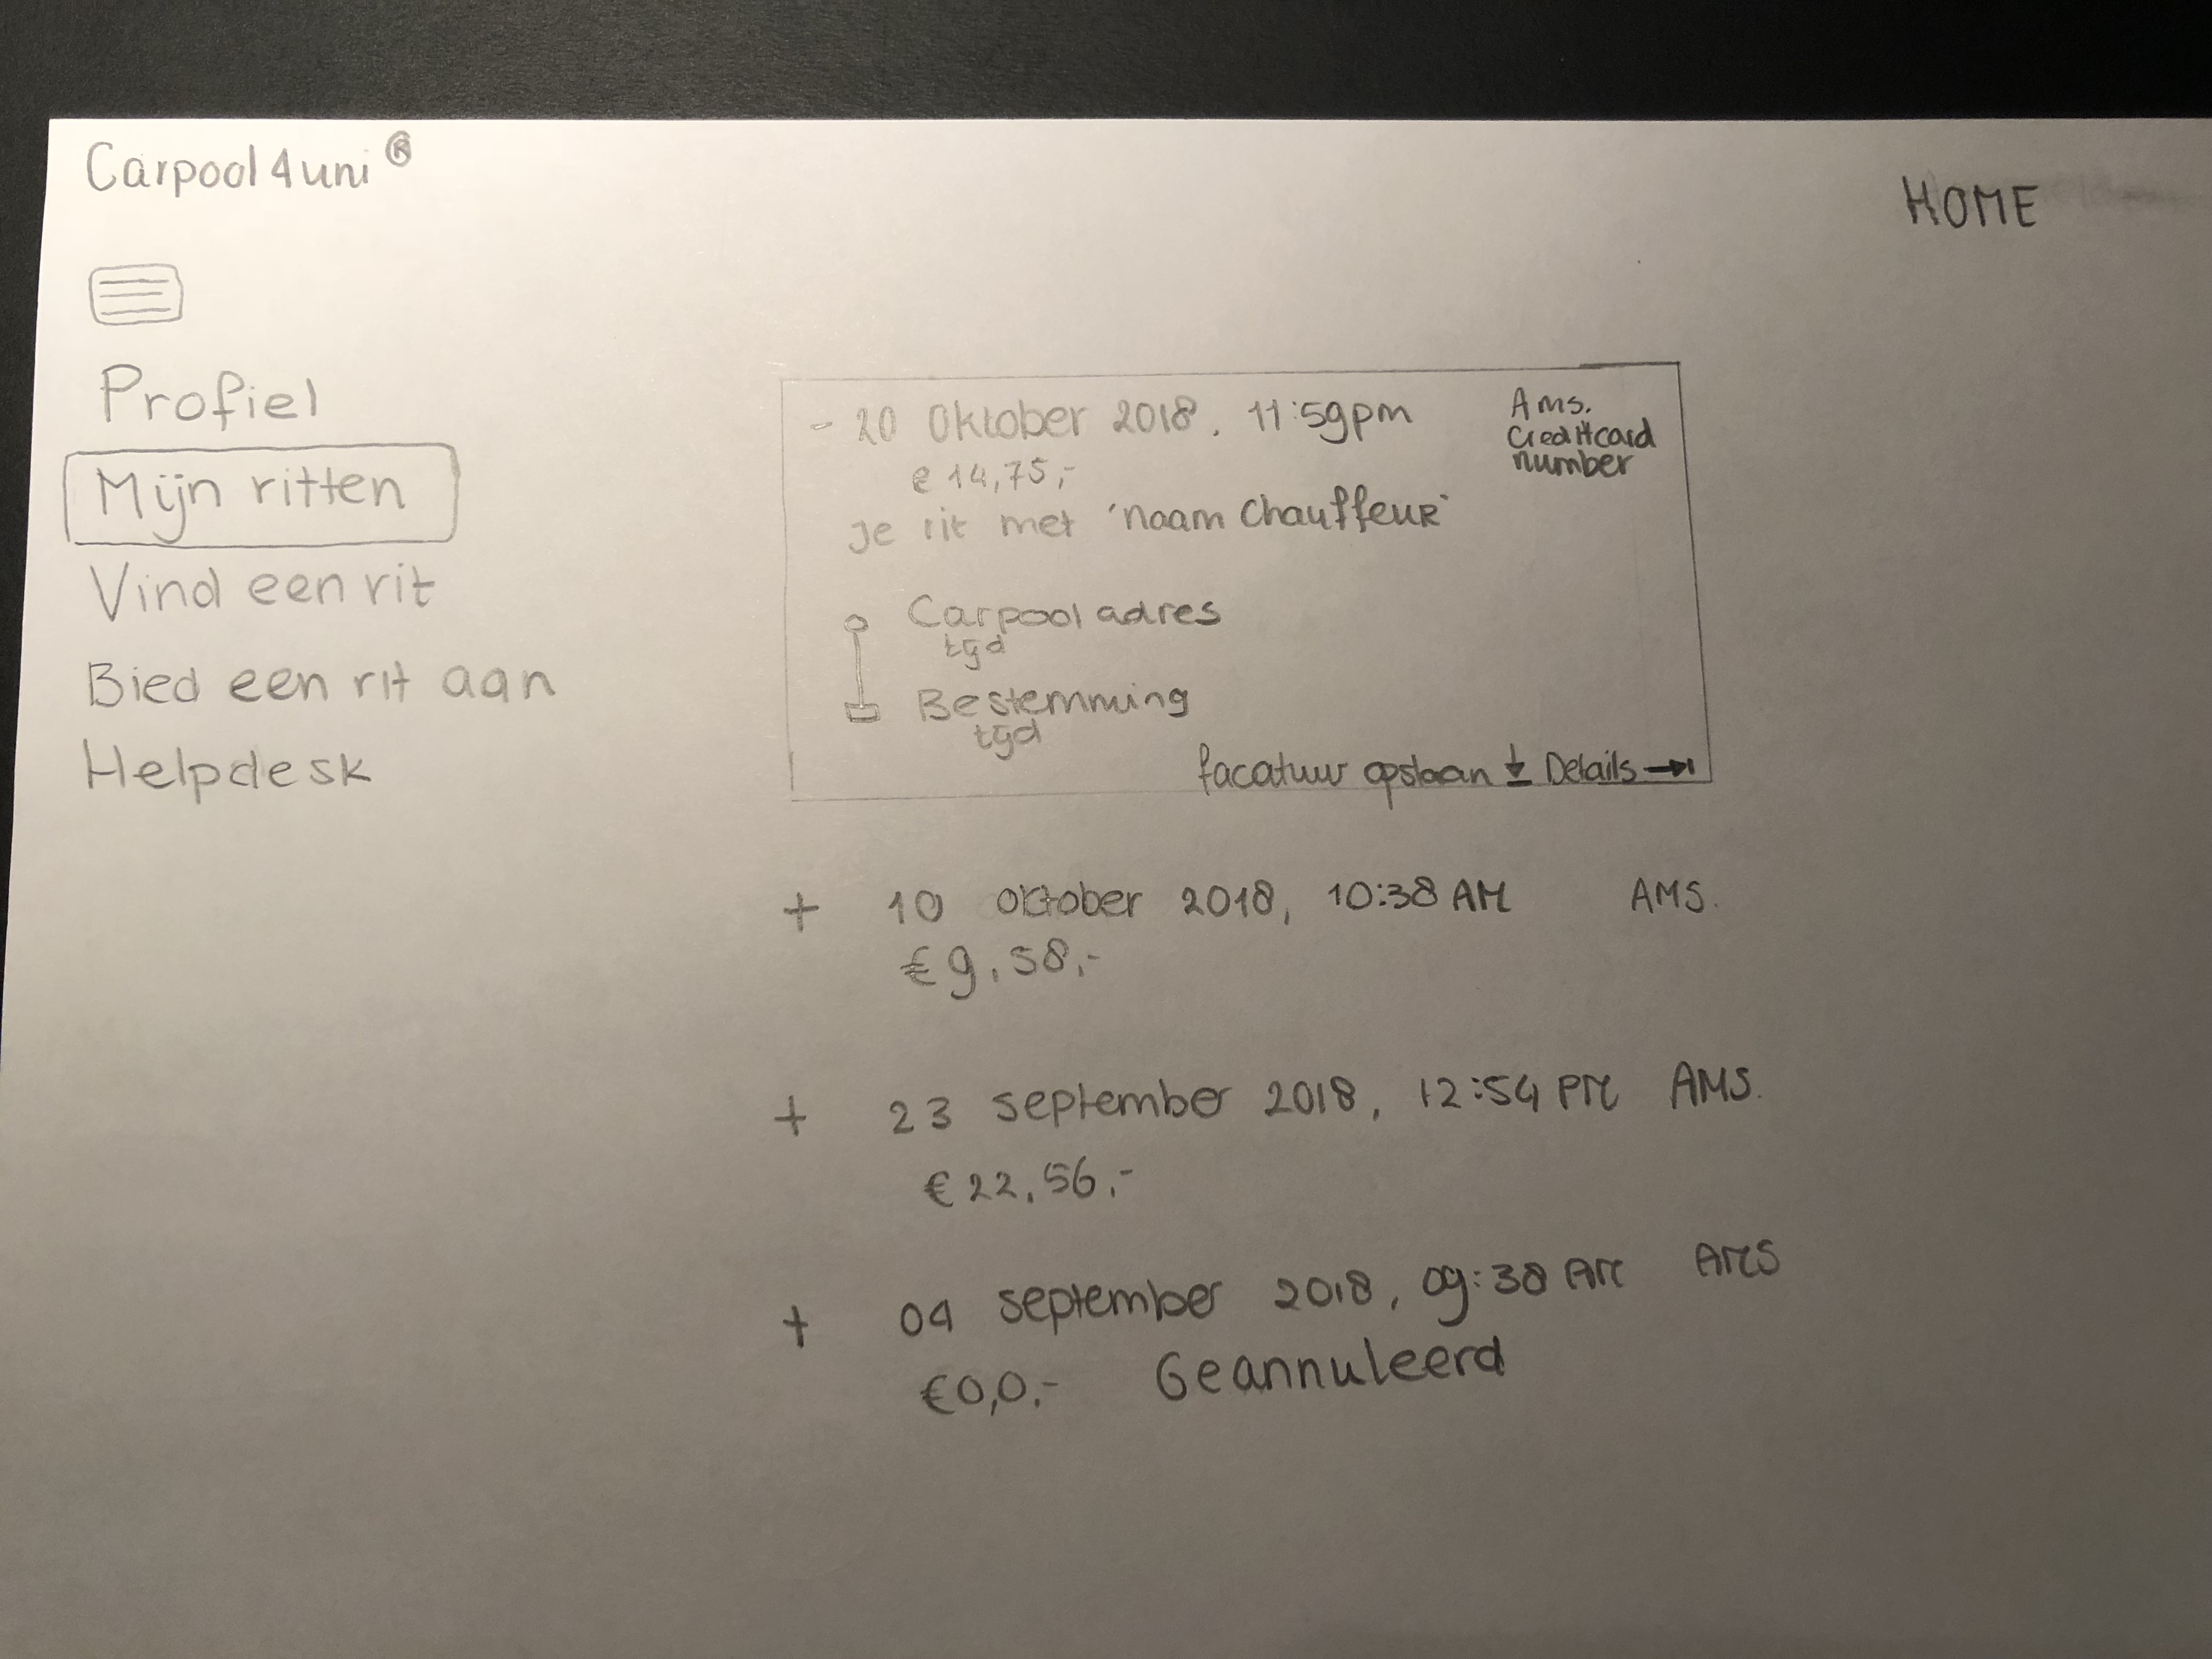 Carpool4uni ®
HOME
Profiel
Mijn ritten
Vind een rit
Bied een rit aan
Helpdesk
- 20 Oktober 2018, 11:59pm
€ 14,75,-
Je rit met 'naam Chauffeur'
Ams.
Creditcard
number
Carpool adres
tijd
Bestemming
tijd
facatuur opslaan Details
+ 10 oktober 2018, 10:38 AM AMS.
€9,58,-
+ 23 september 2018, 12:54 PM AMS.
€22,56,-
+ 04 september 2018, 09:38 AM AMS
€0,0,- Geannuleerd